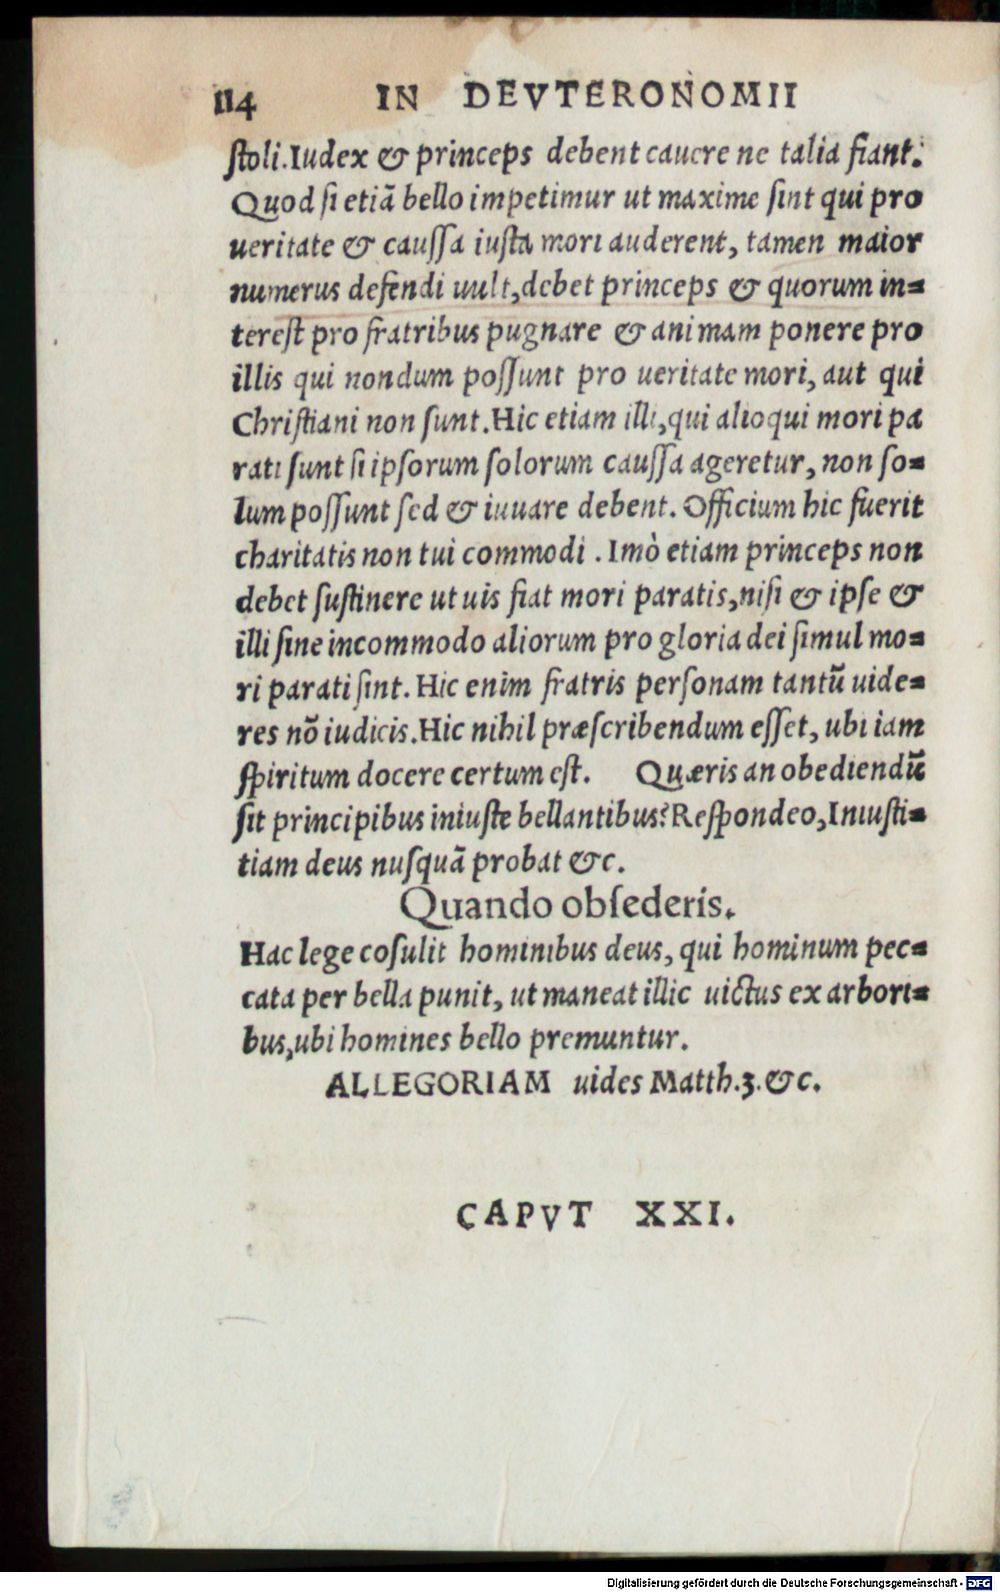 114 IN DEVTERONOMII
ſtoli. Iudex & princeps debent cauere ne talia fiant.
Quod ſi etiã bello impetimur ut maxime ſint qui pro
ueritate & cauſſa iuſta mori auderent, tamen maior
numerus defendi uult, debet princeps & quorum in=
tereſt pro fratribus pugnare & animam ponere pro
illis qui nondum poſſunt pro ueritate mori, aut qui
Chriſtiani non ſunt. Hic etiam illi, qui alioqui mori pa
rati ſunt ſi ipſorum ſolorum cauſſa ageretur, non ſo=
lum poſſunt ſed & iuuare debent. Officium hic fuerit
charitatis non tui commodi. Imò etiam princeps non
debet ſuſtinere ut uis fiat mori paratis, niſi & ipſe &
illi ſine incommodo aliorum pro gloria dei ſimul mo=
ri parati ſint. Hic enim fratris perſonam tantũ uide=
res nõ iudicis. Hic nihil præſcribendum eſſet, ubi iam
ſpiritum docere certum eſt. Quæris an obediendũ
ſit principibus iniuſte bellantibus? Reſpondeo, Iniuſti=
tiam deus nuſquã probat &c.
Quando obſederis.
Hac lege coſulit hominibus deus, qui hominum pec=
cata per bella punit, ut maneat illic uictus ex arbori=
bus, ubi homines bello premuntur.
ALLEGORIAM uides Matth.3.&c.
CAPVT XXI.
Digitalisierung gefördert durch die Deutsche Forschungsgemeinschaft - DFG